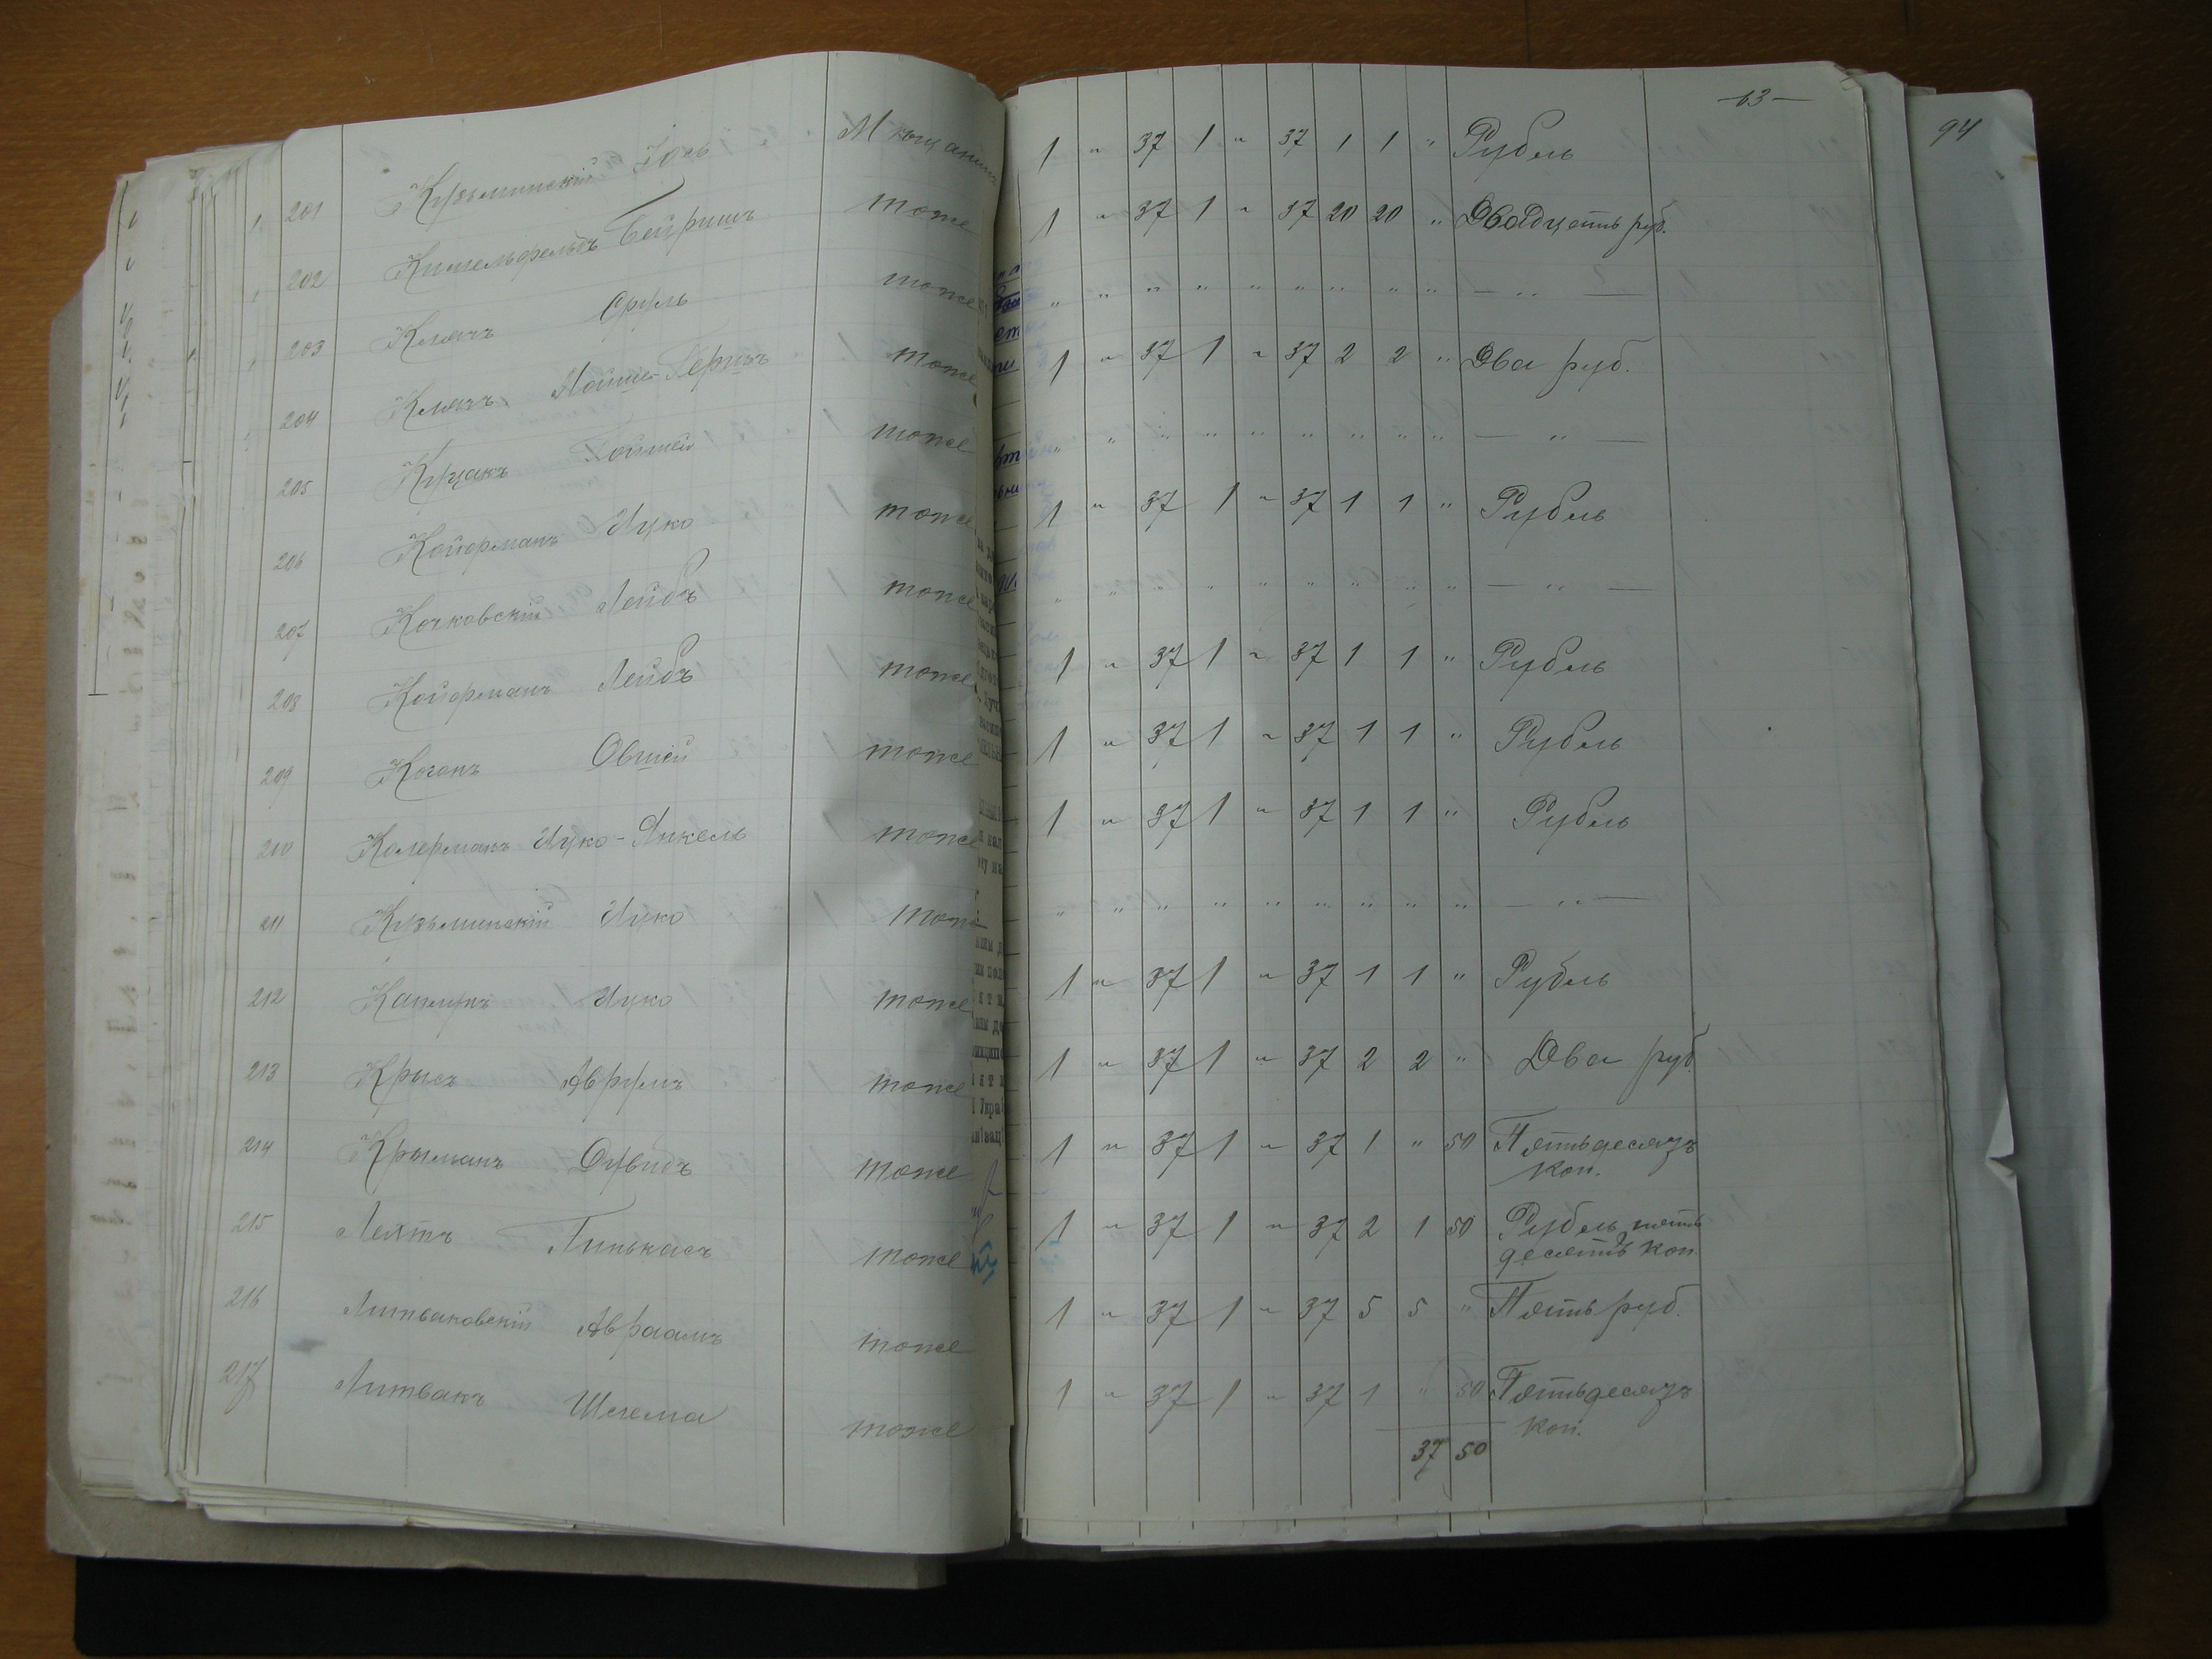 201 Кузьминскій Іось Мѣщанинъ
202 Кишельфельдъ Бейришъ тоже
203 Клячъ Сруль тоже
204 Клячъ Мойше-Герцъ тоже
205 Куцакъ тоже
206 Койфманъ Ицко тоже
207 Кочковскій Лейбъ тоже
208 Койфманъ Лейбъ тоже
209 Коганъ Овшей тоже
210 Ицко-Янкель тоже
211 Кузьминскій Ицко тоже
212 Ицко тоже
213 Крысъ Аврумъ тоже
214 Дувидъ тоже
215 Лехтъ Пинькасъ тоже
216 Литваковскій Авраамъ тоже
217 Литвакъ Шлема тоже
63
94
1 " 37 1 " 37 1 1 " Рубль
1 " 37 1 " 37 20 20 " Двадцать руб.
" " " " " " " " " — " —
1 " 37 1 " 37 2 2 " Два руб.
" " " " " " " " " — " —
1 " 37 1 " 37 1 1 " Рубль
" " " " " " " " " — " —
1 " 37 1 " 37 1 1 " Рубль
1 " 37 1 " 37 1 1 " Рубль
1 " 37 1 " 37 1 1 " Рубль
" " " " " " " " " — " —
1 " 37 1 " 37 1 1 " Рубль
1 " 37 1 " 37 2 2 " Два руб.
1 " 37 1 " 37 1 " 50 Пятьдесятъ
коп.
1 " 37 1 " 37 2 1 50 Рубль пять
десятъ коп.
1 " 37 1 " 37 5 5 " Пять руб.
1 " 37 1 " 37 1 " 50 Пятьдесятъ
коп.
37 50